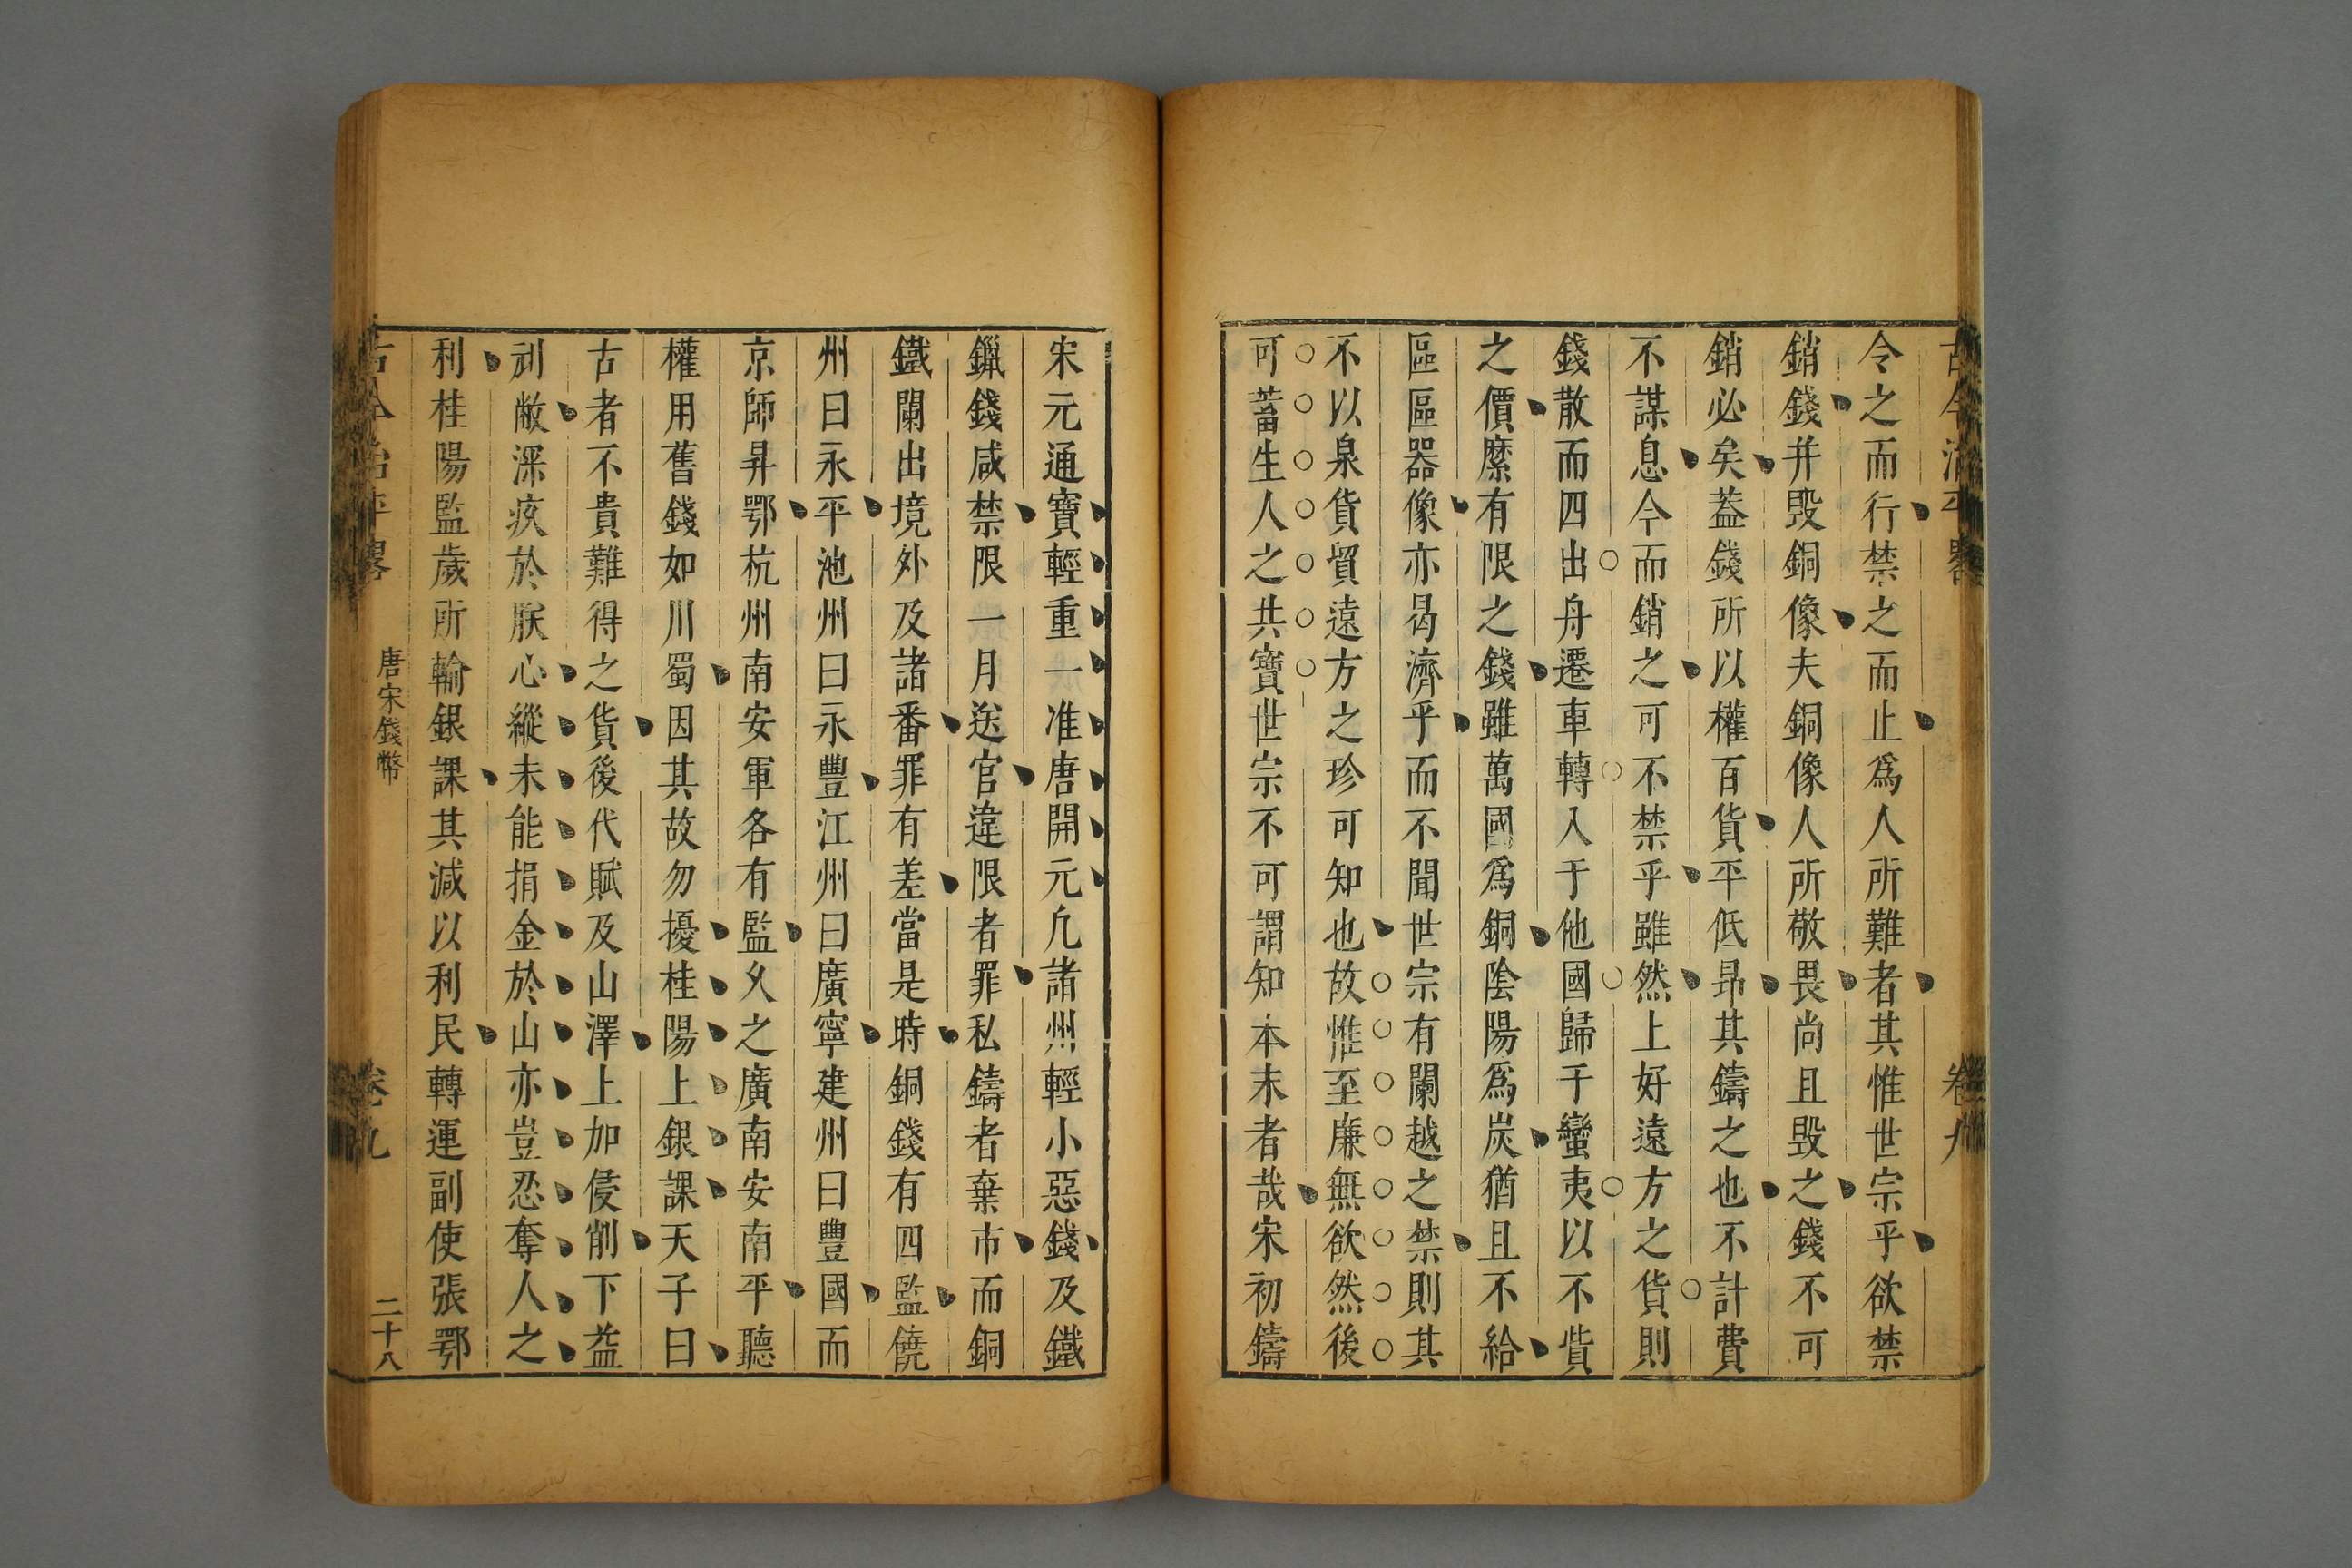 古今治平畧
卷九
令之而行禁之而止爲人所難者其惟世宗乎欲禁
銷錢并毀銅像夫銅像人所敬畏尚且毀之錢不可
銷必矣葢錢所以權百貨平低昻其鑄之也不計費
不謀息今而銷之可不禁乎雖然上好遠方之貨則
錢散而四出舟遷車轉入于他國歸于蠻夷以不貲
之價縻有限之錢雖萬國爲銅陰陽爲炭猶且不給
區區器像亦曷濟乎而不聞世宗有闌越之禁則其
不以泉貨貿遠方之珍可知也故惟至廉無欲然後
可蓄生人之共寶世宗不可謂知本末者哉宋初鑄
宋元通寶輕重一准唐開元凢諸州輕小惡錢及鐵
鑞錢咸禁限一月送官違限者罪私鑄者棄市而銅
鐵闌出境外及諸番罪有差當是時銅錢有四監饒
州曰永平池州曰永豐江州曰廣寧建州曰豐國而
京師昇鄂杭州南安軍各有監乆之廣南安南平聽
權用舊錢如川蜀因其故勿擾桂陽上銀課天子曰
古者不貴難得之貨後代賦及山澤上加侵削下益
刓敝深疚於朕心縱未能捐金於山亦豈忍奪人之
利桂陽監歲所輸銀課其減以利民轉運副使張鄂
古今治平畧
唐宋錢幣
卷九
二十八